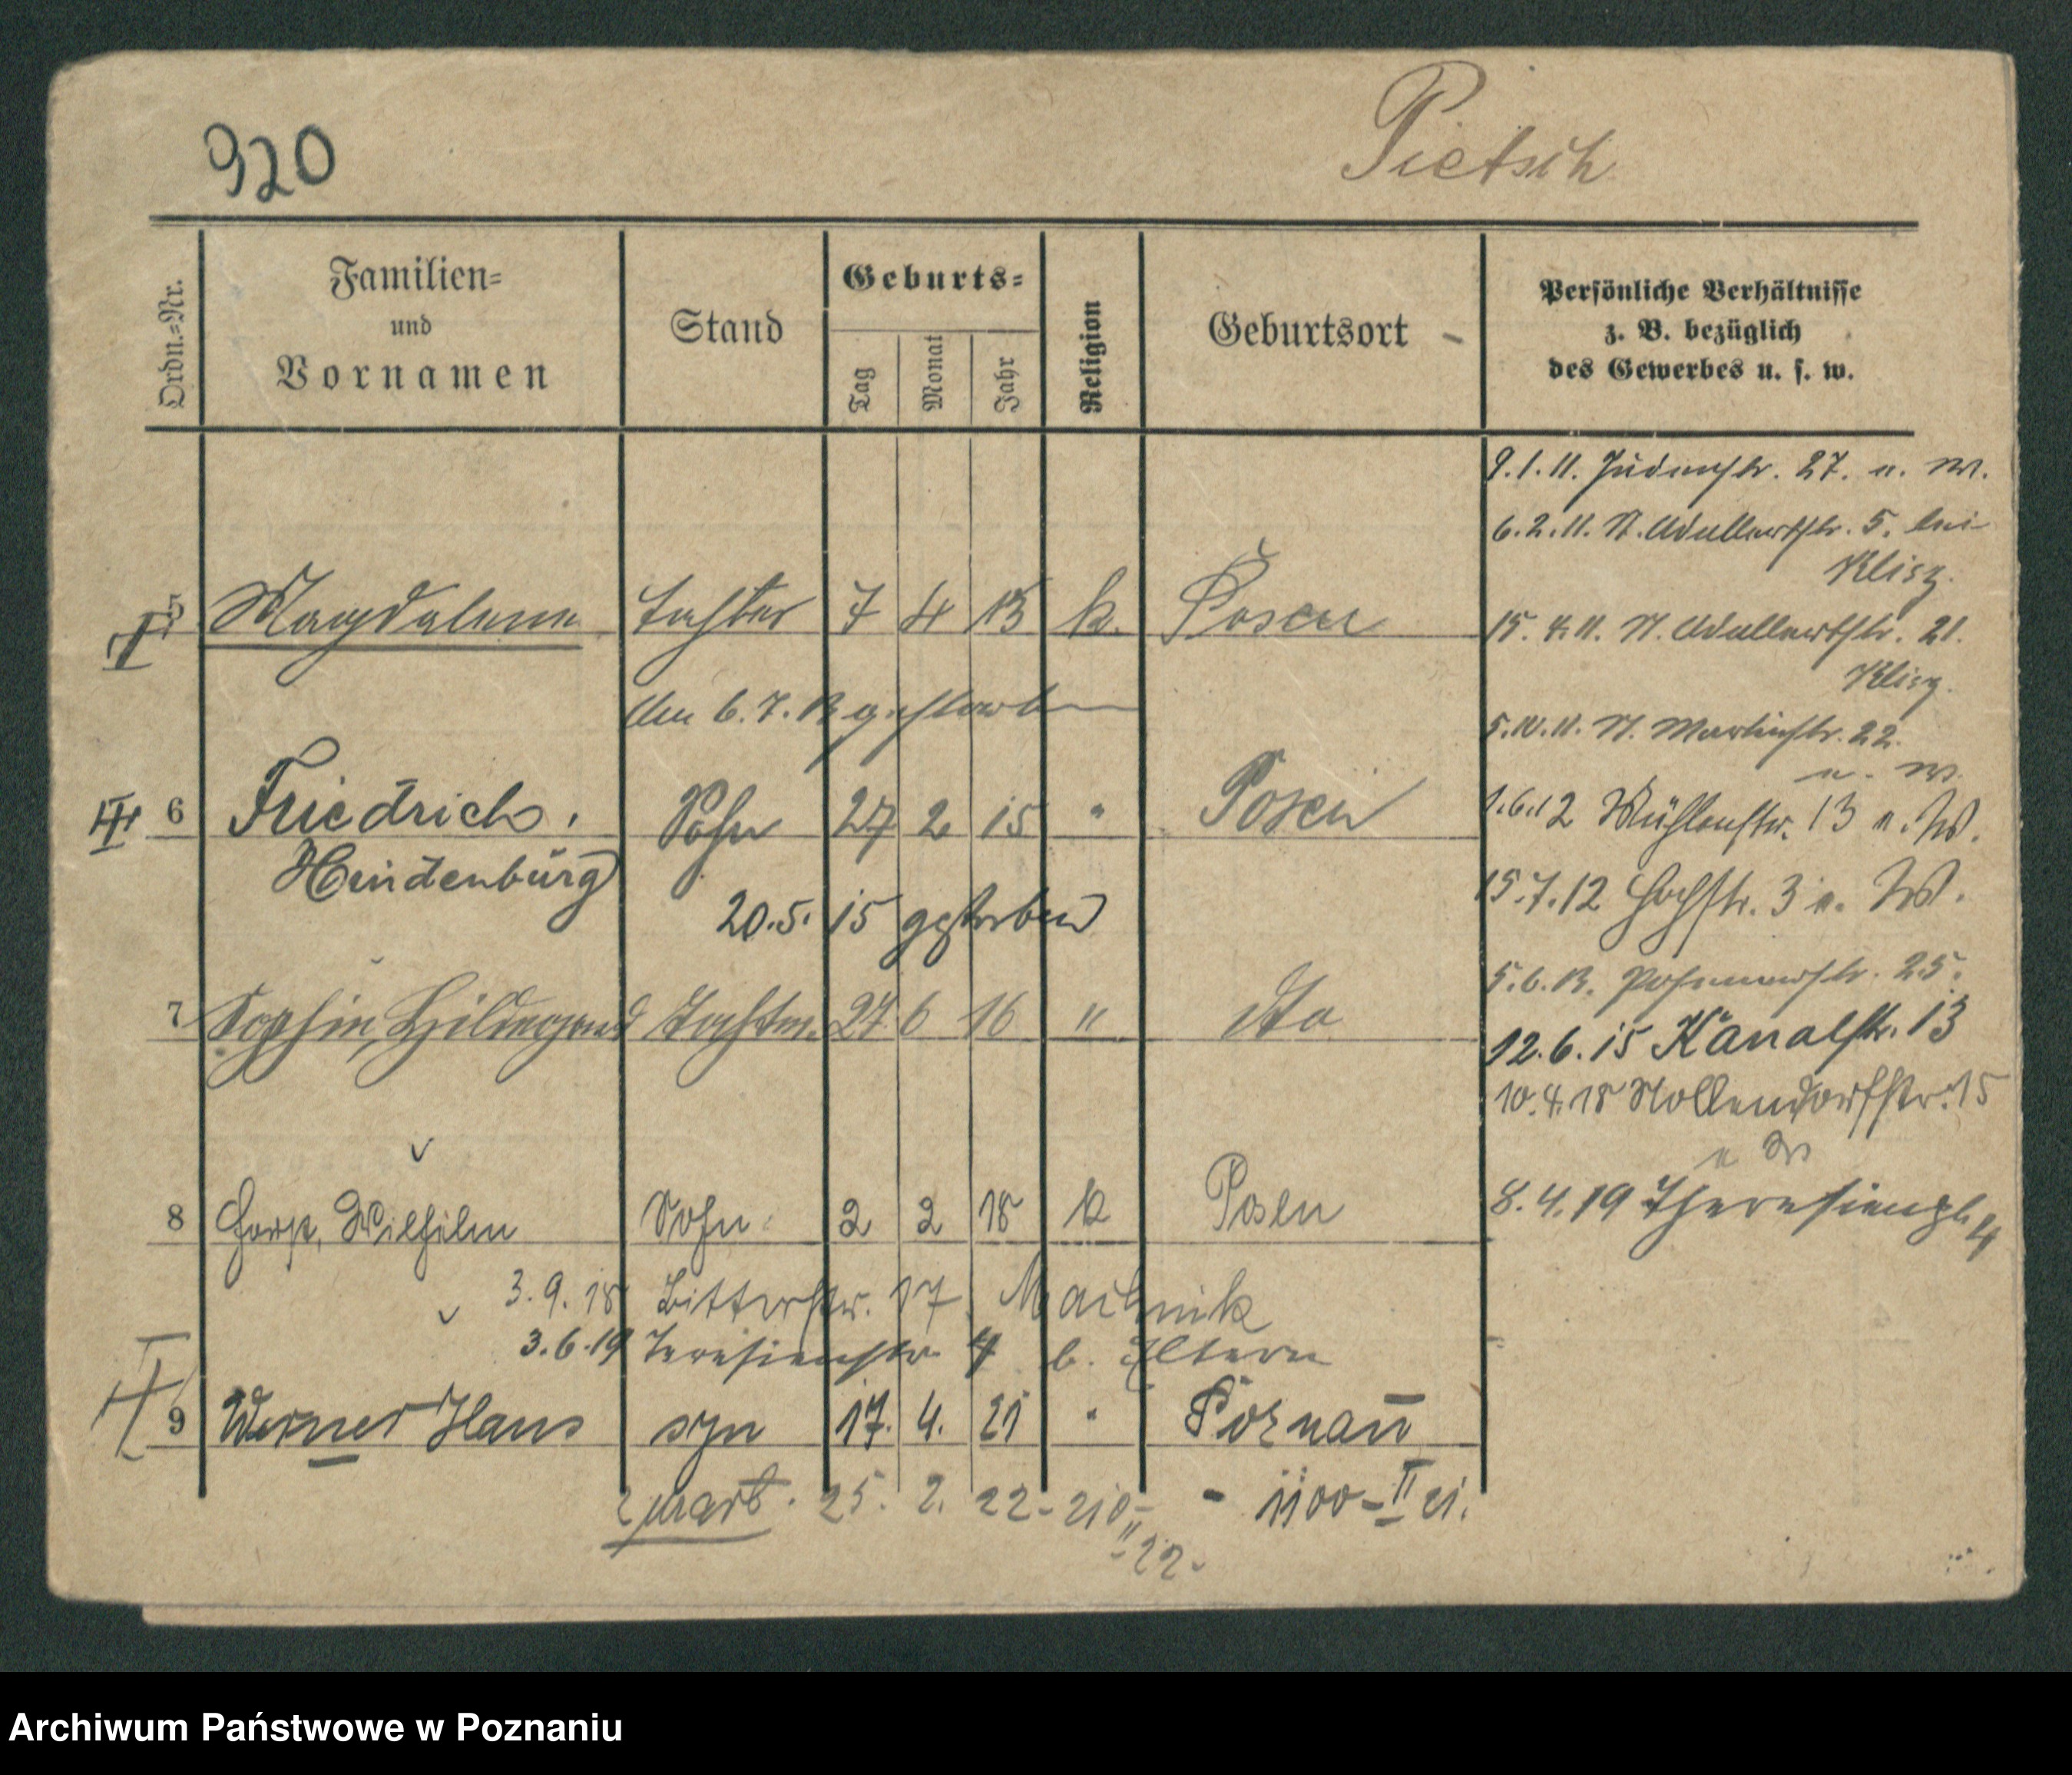 920
Pietsch
Ordn.=Nr.
Familien=
und
Vornamen
Stand
Geburts=
Tag
Monat
Jahr
Religion
Geburtsort
Persönliche Verhältnisse
z. B. bezüglich
des Gewerbes u. s. w.
9.1.11. Judenstr. 27. u. W.
6.2.11. St. Adalbertstr. 5. bei
Klisz.
5 Magdalena Tochter 7 4 13 k. Posen
15. 4. 11. St. Adalbertstr. 21.
Klisz.
den 6. 7. 13 gestorben
5.10.11. St. Martinstr. 22.
u. W.
6 Friedrich, Sohn 27 2 15 " Posen
1.6.12 Mühlenstr. 13 u. W.
Hindenburg
15.7.12 Hochstr. 3 u. W.
20.5. 15 gestorben
5.6.13. Posenerstr. 25.
7 Sophie, Hildegard Tochter 27 6 16 " dto
12.6.15 Kanalstr. 13
10.4.18 Nollendorfstr. 15
u W
8 Wilhelm Sohn 2 2 18 k Posen
8.4.19 Theresienstr. 4
3.9.18 Bitterstr. 17. Machnik
3.6.19 Teresienstr 4 b. Eltern
9 Werner Hans syn 17. 4. 21 " Poznań
zmarł. 25. 2. 22 - 210
II 22 -
- 1100 - II 21.
Archiwum Państwowe w Poznaniu